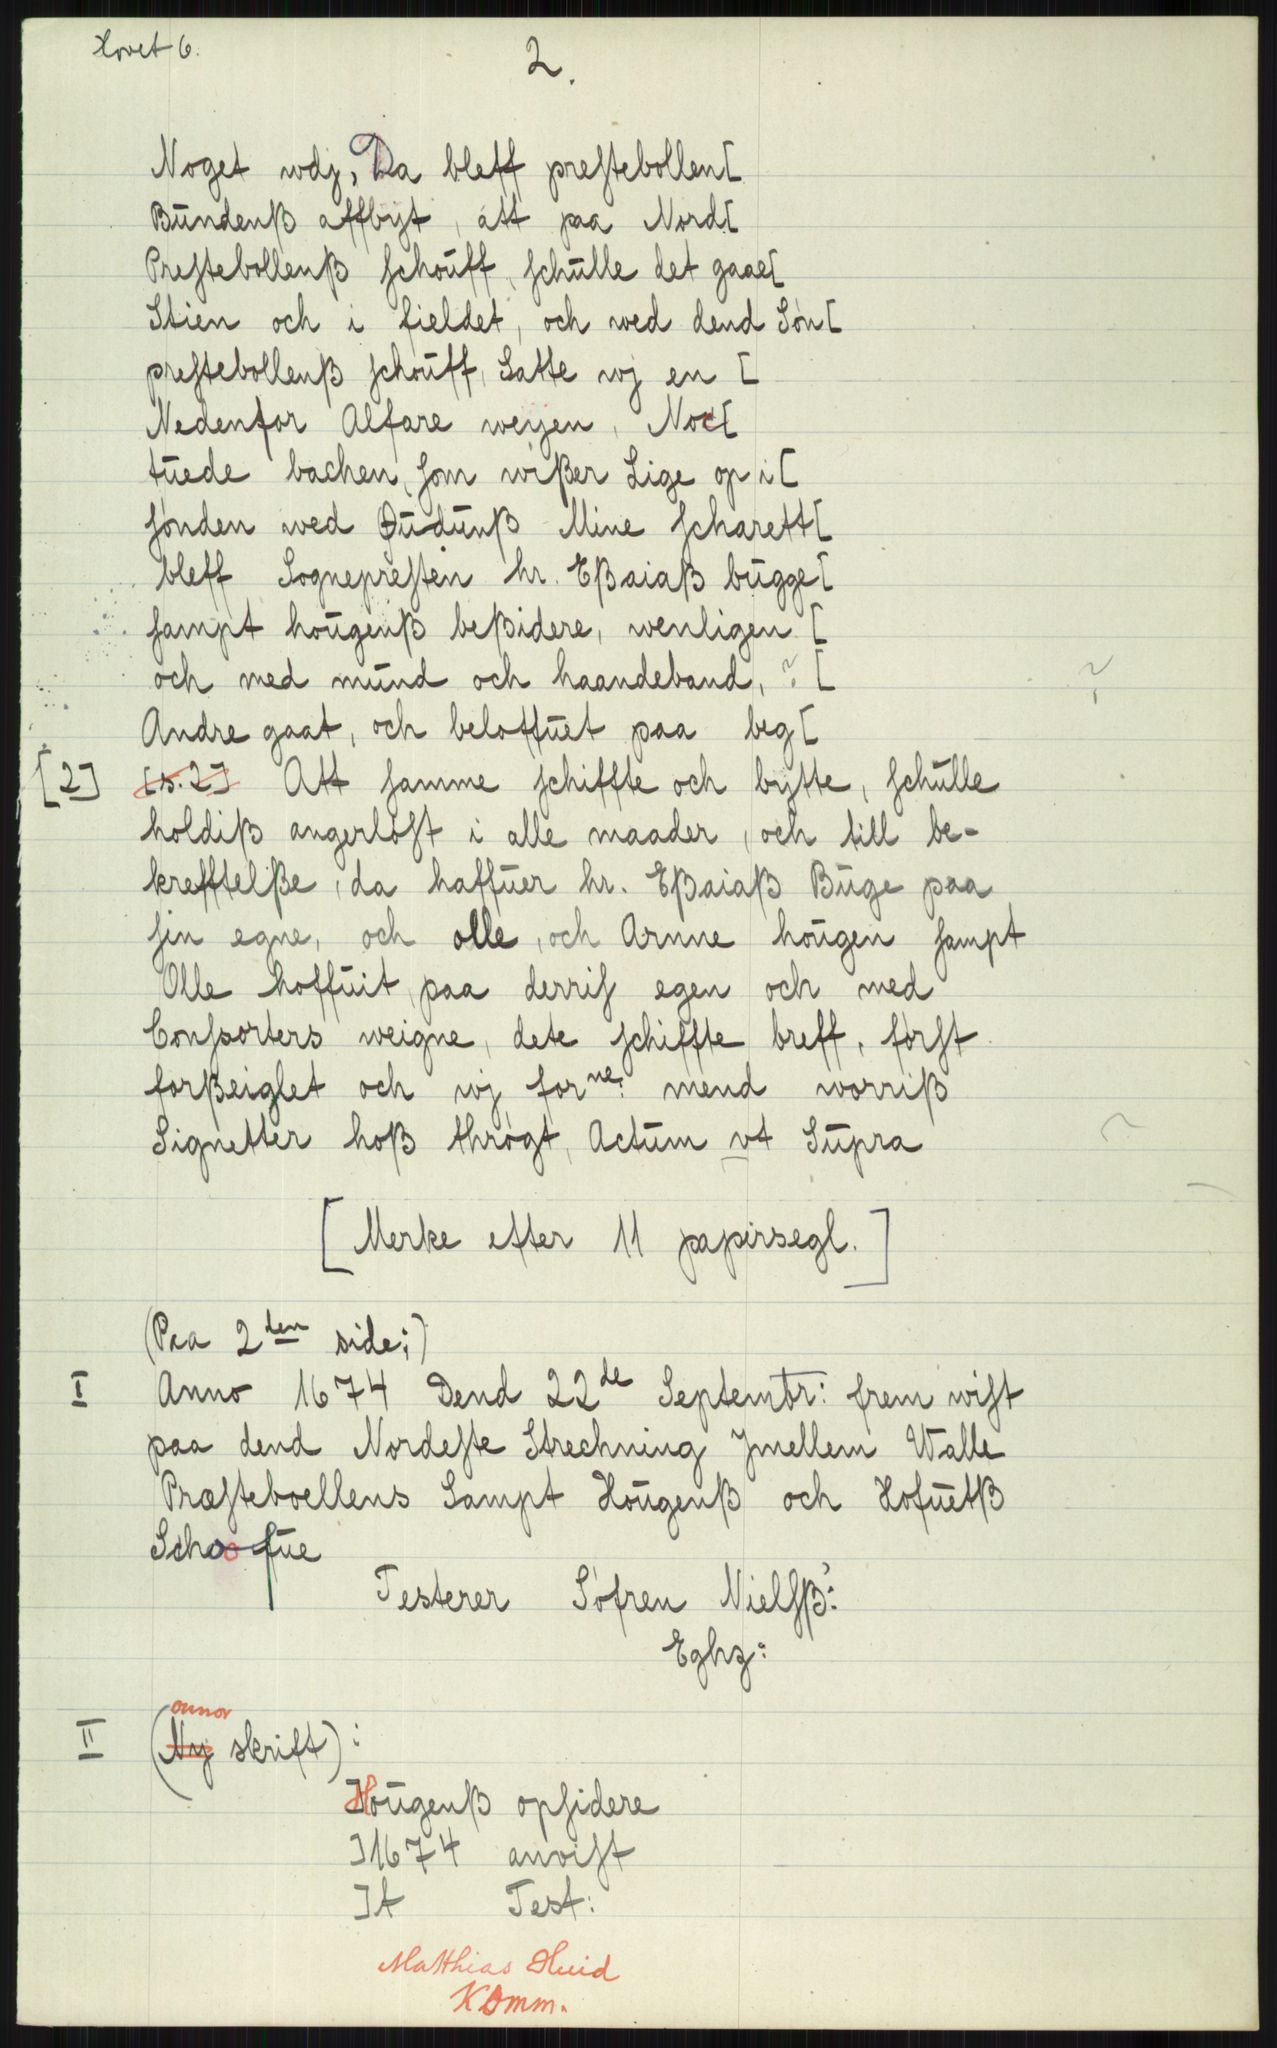 Hovet 6.
2.
Noget wdj, Da bleff preſtebollen[
Bündenß affbyt, att paa Nord[
Preſtebollenß ſchoüff, ſchülle det gaae[
Stien och i fieldet, och wed dend Søn[
preſtebollenß ſchoüff, Satte wj en [
Nedenfor Alfare weyen, Noc[
tüede bachen, ſom wißer Lige op i [
ſønden wed Güdünß Mine ſcharett[
bleff Sognepreſten hr. Eßaiaß bügge[
ſampt hoügenß beßidere, wenligen [
och med münd och haandeband, ? [
Andre gaat, och beloffüet paa beg[
[2] [s. 2] Att ſamme ſchiffte och bytte, ſchülle
holdiß angerløſt i alle maader, och till be-
krefftelße, da haffüer hr. Eßaiaß Büge paa
ſin egne, och olle, och Arnne hoügen ſampt
Olle hoffüit, paa derriſ egen och med
Conſsorters weigne, dete ſchiffte breff, førſt
forßeiglet och wj forne: mend worriß
Signetter hoß thrøgt, Actüm vt Süpra
[Merke efter 11 papirsegl.]
(Paa 2den side;)
I Anno 1674 Dend 22de Septembr: frem wiſt
paa dend Nordeſte Strechning Jmellem Walle
Præſteboellens Sampt Hoügenß och Hofüetß
Schoofüe
Testerer Søfren Nielſß:
Eghz:
II (Ny onnor skrift):
]Hoügenß opſidere
]1674 anviſt
]t Test:
Matthias Huid
KDmm.